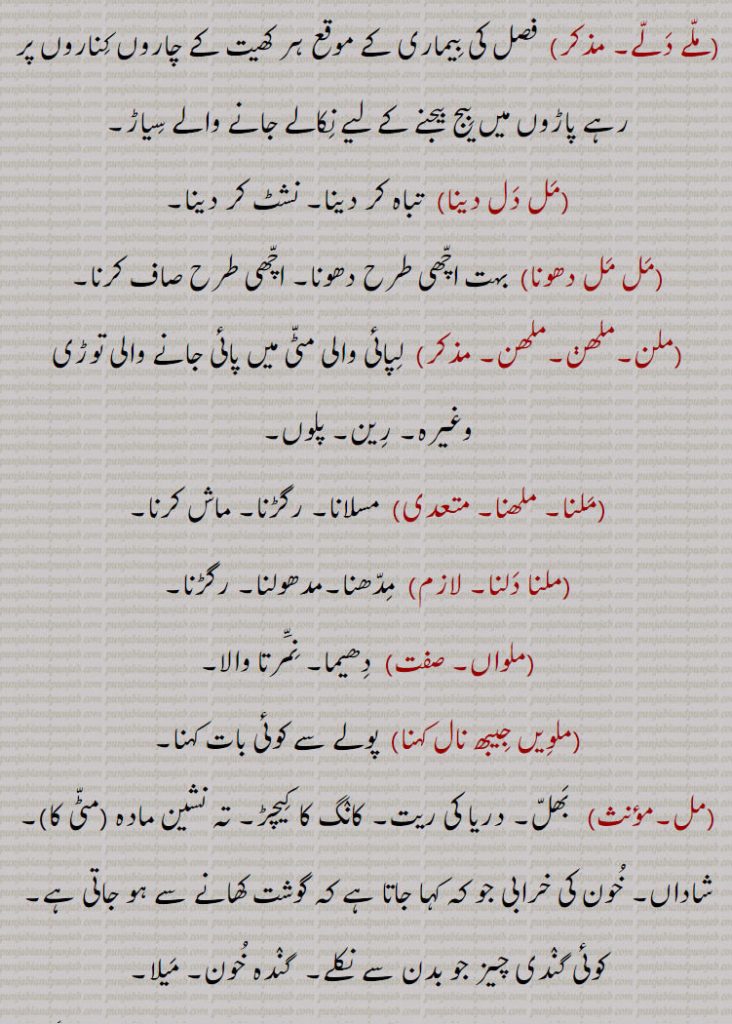 (ملّے دَلّے۔ مذکر) فصل کی بِیماری کے موقع ہر کھیت کے چاروں کِناروں پر
رہے پاڑوں میں بِیج بیجنے کے لیے نِکالے جانے والے سِیاڑ۔
(مَل دَل دینا) تباہ کر دینا۔ نشٹ کر دینا۔
(مَل مَل دھونا) بہت اچّھی طرح دھونا۔ اچّھی طرح صاف کرنا۔
(ملن۔ملھݨ۔ملھن۔ مذکر) لِپائی والی مٹّی میں پائی جانے والی توڑی
وغیرہ۔ رِین۔ پلوں۔
(مَلنا۔ ملھنا۔ متعدی) مسلانا۔ رگڑنا۔ ماش کرنا۔
(ملنا دَلنا۔ لازم) مِدّھنا۔مدھولنا۔ رگڑنا۔
(ملواں۔ صفت) دِھیما۔ نِمَّرتا والا۔
(ملوِیں جِیبھ نال کہنا) پولے سے کوئی بات کہنا۔
(مل۔مؤنث) بَھلّ۔ دریا کی ریت۔ کانگ کا کِیچڑ۔ تہ نشین مادہ (مٹّی کا)۔
شاداں۔ خُون کی خرابی جو کہ کہا جاتا ہے کہ گوشت کھانے سے ہو جاتی ہے۔
کوئی گندی چیز جو بدن سے نکلے۔ گندہ خُون۔ مَیلا۔